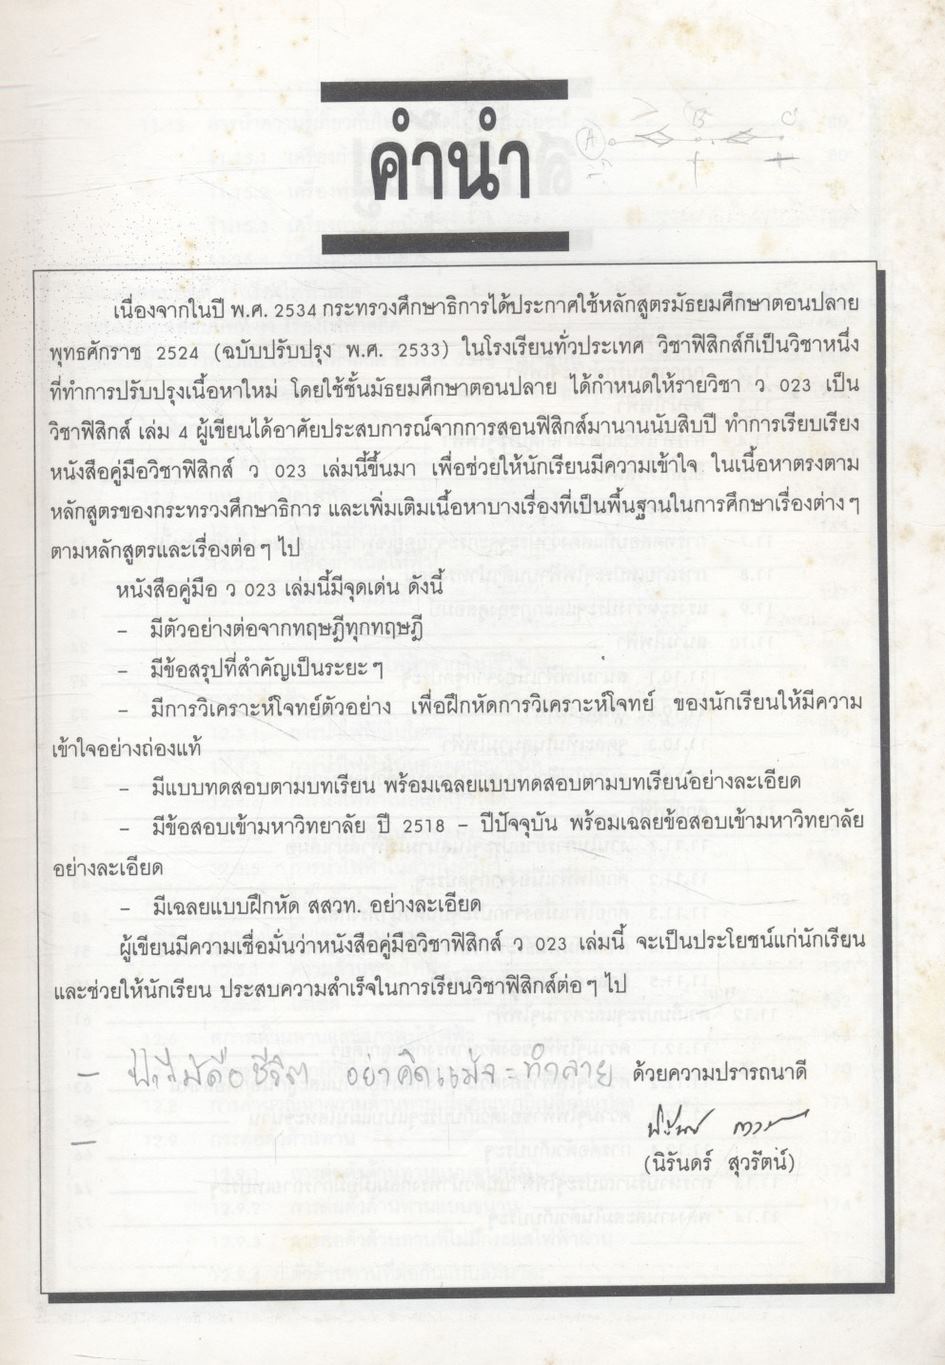 คำนำ
A B C
เนื่องจากในปี พ.ศ. 2534 กระทรวงศึกษาธิการได้ประกาศใช้หลักสูตรมัธยมศึกษาตอนปลาย
พุทธศักราช 2524 (ฉบับปรับปรุง พ.ศ. 2533) ในโรงเรียนทั่วประเทศ วิชาฟิสิกส์ก็เป็นวิชาหนึ่ง
ที่ทำการปรับปรุงเนื้อหาใหม่ โดยใช้ชั้นมัธยมศึกษาตอนปลาย ได้กำหนดให้รายวิชา ว 023 เป็น
วิชาฟิสิกส์ เล่ม 4 ผู้เขียนได้อาศัยประสบการณ์จากการสอนฟิสิกส์มานานนับสิบปี ทำการเรียบเรียง
หนังสือคู่มือวิชาฟิสิกส์ ว 023 เล่มนี้ขึ้นมา เพื่อช่วยให้นักเรียนมีความเข้าใจ ในเนื้อหาตรงตาม
หลักสูตรของกระทรวงศึกษาธิการ และเพิ่มเติมเนื้อหาบางเรื่องที่เป็นพื้นฐานในการศึกษาเรื่องต่างๆ
ตามหลักสูตรและเรื่องต่อๆ ไป
หนังสือคู่มือ ว 023 เล่มนี้มีจุดเด่น ดังนี้
- มีตัวอย่างต่อจากทฤษฎีทุกทฤษฎี
- มีข้อสรุปที่สำคัญเป็นระยะๆ
- มีการวิเคราะห์โจทย์ตัวอย่าง เพื่อฝึกหัดการวิเคราะห์โจทย์ ของนักเรียนให้มีความ
เข้าใจอย่างถ่องแท้
- มีแบบทดสอบตามบทเรียน พร้อมเฉลยแบบทดสอบตามบทเรียนอย่างละเอียด
- มีข้อสอบเข้ามหาวิทยาลัย ปี 2518 - ปีปัจจุบัน พร้อมเฉลยข้อสอบเข้ามหาวิทยาลัย
อย่างละเอียด
- มีเฉลยแบบฝึกหัด สสวท. อย่างละเอียด
ผู้เขียนมีความเชื่อมั่นว่าหนังสือคู่มือวิชาฟิสิกส์ ว 023 เล่มนี้ จะเป็นประโยชน์แก่นักเรียน
และช่วยให้นักเรียน ประสบความสำเร็จในการเรียนวิชาฟิสิกส์ต่อๆ ไป
ด้วยความปรารถนาดี
(นิรันดร์ สุวรัตน์)